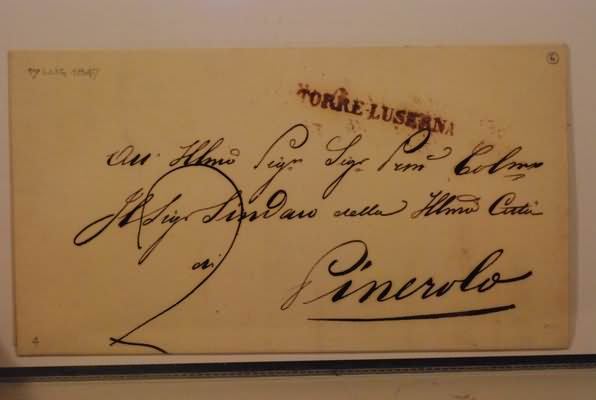 19 1847
6
TORRE-LUSERNA
All Illmo Sigr Sigr Prmo Colmo
Il Sigr Sindaco della Illma Città
di
2
Pinerolo
4